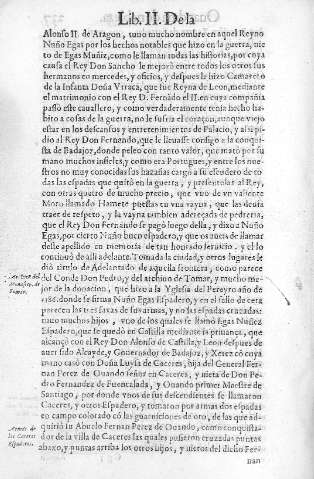 Lib. II. De la
Alonso II. de Aragon, tuuo mucho nombre en aquel Reyno
Nuño Egas por los hechos notables que hizo en la guerra, nie
to de Egas Muñiz, como le llaman todas las historias, por cuya
causa el Rey Don Sancho le mejorò entre todos los otros sus
hermanos en mercedes, y oficios, y despues le hizo Camarero
de la Infanta Doña Vrraca, que fue Reyna de Leon, mediante
el matrimonio con el Rey D. Fernãdo el II. en cuya compañia
passò este cauallero, y como verdaderamente tenia hecho ha-
bito a cosas de la guerra, no le sufria el coraçon, aunque viejo
estar en los descansos y entretenimientos de Palacio, y assi pi-
dio al Rey Don Fernando, que le lleuasse consigo a la conqui-
sta de Badajoz, donde peleò con tanto valor, que matò por su
mano muchos infieles, y como era Portugues, y entre los nue-
stros no muy conocidas sus hazañas cargò a su escudero de to-
das las espadas que quitò en la guerra, y presentolas al Rey,
con otras quatro de mucho precio, que vno de vn valiente
Moro llamado Hamete puestas en vna vayna, que las deuia
traer de respeto, y la vayna tambien adereçada de pedreria,
que el Rey Don Fernando se pagò luego della, y dixo a Nuño
Egas, por cierto Nuño buen espadero, y que os aueis de llamar
deste apellido en memoria de tan honrado seruicio. y el lo
continuò de alli adelante. Tomada la ciudad, y otros lugares le
diò titulo de Adelantado de aquella frontera, como parece
del Conde Don Pedro, y del archiuo de Tomar, y mucho me-
jor de la donacion, que hizo a la Yglesia del Pereyro año de
donde se firma Nuño Egas Espadero, y en el sello de cera
parecen las tres faxas de y no las espadas cruzadas:
tuuo muchos hijos, y vno de los quales se llamò Egas Nuñez
Espadero, que se quedò en Castilla mediante la priuança, que
alcançò con el Rey Don Alonso de Castilla, y Leon despues de
auer sido Alcayde, y Gouernador de Badajoz, y Xerez cò cuya
mano casò con Doña Luysa de Caceres, hija del General Fer-
nan Perez de Ouando señor en Caceres, y nieta de Don Pe-
dro Fernandez de Fuencalada, y Ouando primer Maestre de
Santiago, por donde vnos de sus descendientes se llamaron
Caceres, y otros Espadero, y tomaron por armas dos espadas
en campo colorado cò las guarniciones de oro, de las que ad-
quiriò su Abuelo Fernan Perez de Ouando, como conquista-
dor de la villa de Caceres las quales pusieron cruzadas puntas
abaxo, y puntas arriba los otros hijos, y nietos del dicho Fer-
nan
Archiuo del
Monasterio de
Tomar.
Armas de
los Caceres
Espaderos.